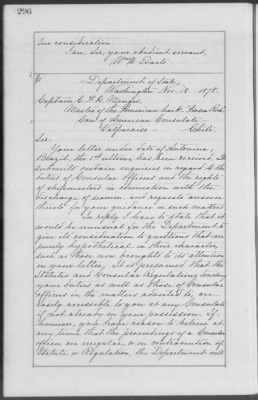 296
Your consideration.
I am, Sir, your obedient servant,
Wm M. Evarts
Department of State,
Washington Nov. 18 1878.
Captain C. F. H.
Master of the American bark
Care of American Consulate
Valparaiso - Chili.
Sir:
Your letter under date of Antonina,
Brazil, the 1st ultimo, has been received. It
submits certain inquiries in regard to the
duties of Consular officers and the rights
of shipmasters in connection with the
discharge of seamen, and requests answers
thereto for your guidance in such matters.
In reply I have to state that it
would be unusual for the Department to
give its consideration to questions that are
purely hypothetical in their character,
such as those now brought to its attention
in your letter. It is presumed that the
Statutes and Consular Regulations, covering
your duties as well as those of Consular
officers in the matters adverted to, are
easily accessible to you at any Consulate
if not already in your possession. If,
however, you have reason to believe at
any time that the proceedings of a Consular
officer are irregular, or in contravention of
Statute or Regulation, the Department will